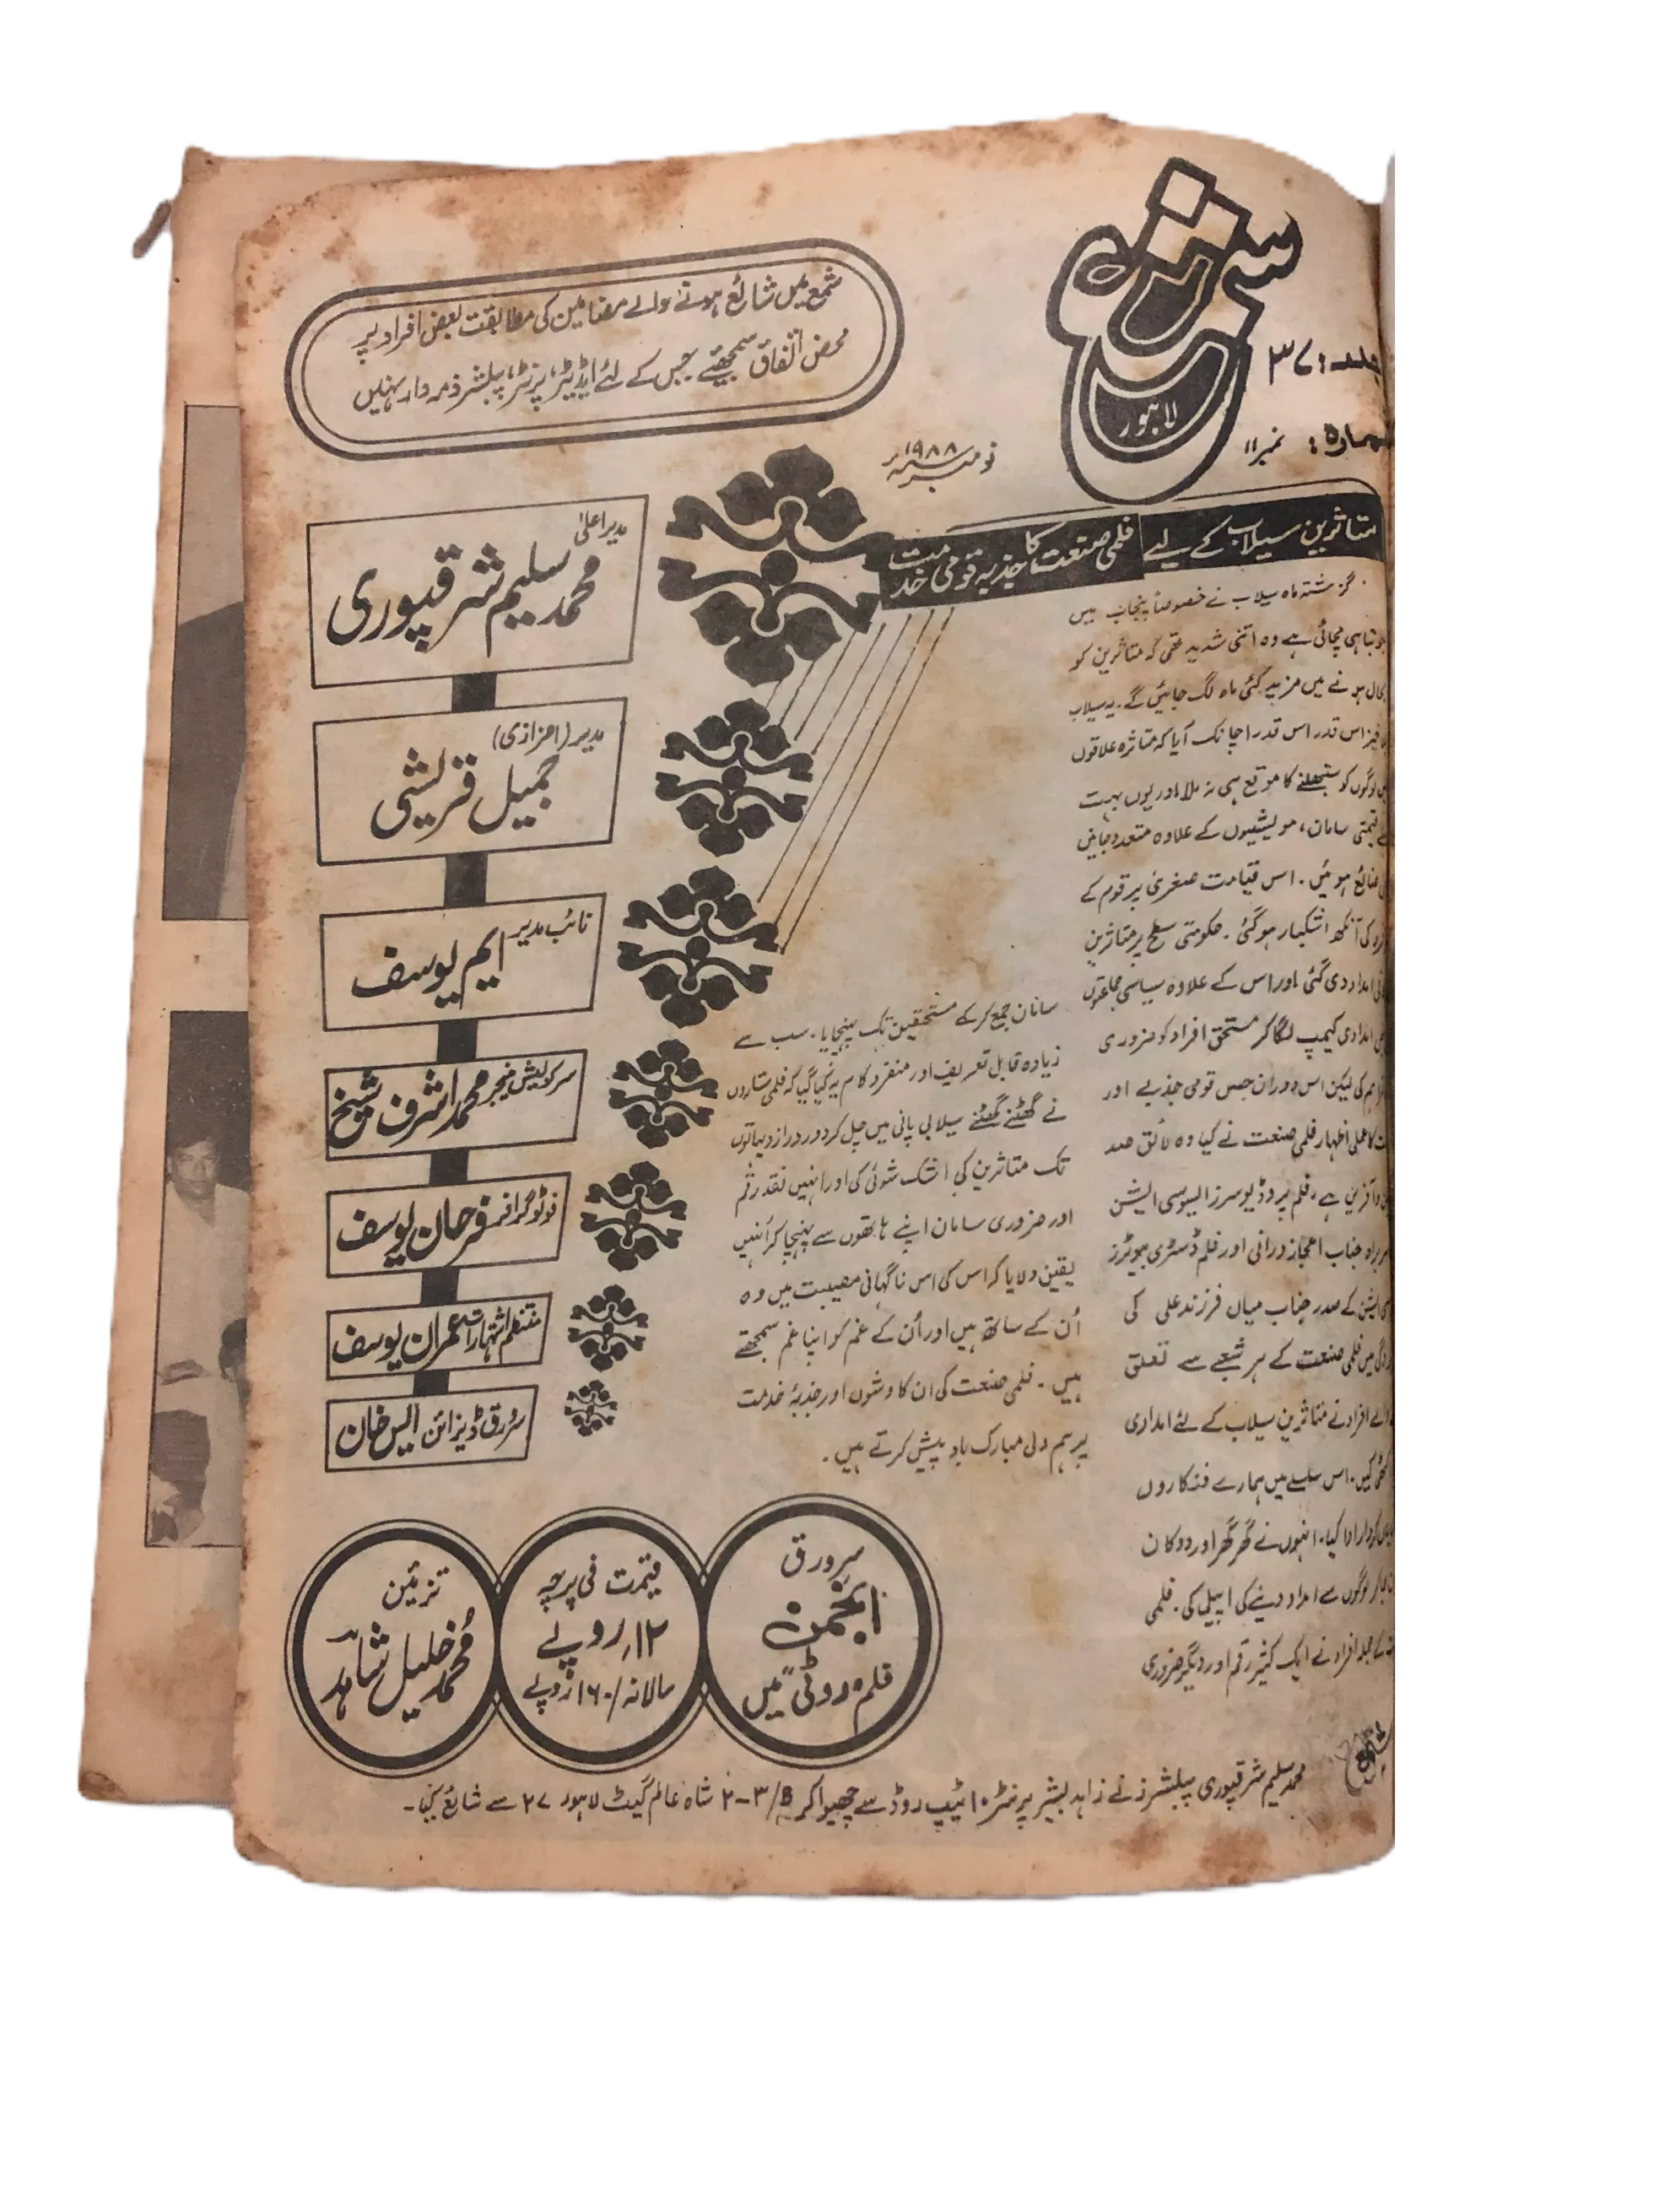 شمع
لاہور
جلد: ۳۷
شمارہ: نمبر ۱۱
نومبر ۱۹۸۸
شمع میں شائع ہونے والے مضامین کی مطابقت بعض افراد پر
محض اتفاق سمجھئے جس کے لئے ایڈیٹر، پرنٹر، پبلشر ذمہ دار نہیں
متاثرین سیلاب کے لیے فلمی صنعت کا جذبہ قومی خدمت
گزشتہ ماہ سیلاب نے خصوصاً پنجاب میں
جو تباہی مچائی ہے وہ اتنی شدید تھی کہ متاثرین کو
بحال ہونے میں مزید کئی ماہ لگ جائیں گے۔ یہ سیلاب
اس قدر اس قدر اچانک آیا کہ متاثرہ علاقوں
لوگوں کو سنبھلنے کا موقع ہی نہ ملا اور یوں بہت
قیمتی سامان، مویشیوں کے علاوہ متعدد جانیں
ضائع ہوئیں۔ اس قیامت صغریٰ پر قوم کے
کی آنکھ اشکبار ہوگئی۔ حکومتی سطح پر متاثرین
امداد دی گئی اور اس کے علاوہ سیاسی جماعتوں
امدادی کیمپ لگا کر مستحق افراد کو ضروری
کی لیکن اس دوران جس قومی جذبے اور
کا عملی اظہار فلمی صنعت نے کیا وہ لائق صد
آفرین ہے۔ فلم پروڈیوسرز ایسوسی ایشن
سربراہ جناب اعجاز درانی اور فلم ڈسٹری بیوٹرز
ایشن کے صدر جناب میاں فرزند علی کی
میں فلمی صنعت کے ہر شعبے سے تعلق
والے افراد نے متاثرین سیلاب کے لئے امدادی
کیں۔ اس سلسلے میں ہمارے فنکاروں
کردار ادا کیا۔ انہوں نے گھر گھر اور دوکان
جا کر لوگوں سے امداد دینے کی اپیل کی۔ فلمی
کے جملہ افراد نے ایک کثیر رقم اور دیگر ضروری
سامان جمع کرکے مستحقین تک پہنچایا۔ سب سے
زیادہ قابل تعریف اور منفرد کام یہ کیا گیا کہ فلمی ستاروں
نے گھٹنے گھٹنے سیلابی پانی میں چل کر دور دراز دیہاتوں
تک متاثرین کی اشک شوئی کی اور انہیں نقد رقم
اور ضروری سامان اپنے ہاتھوں سے پہنچا کر اُنہیں
یقین دلایا کہ اس کی اس ناگہانی مصیبت میں وہ
اُن کے ساتھ ہیں اور اُن کے غم کو اپنا غم سمجھتے
ہیں۔ فلمی صنعت کی ان کاوشوں اور جذبۂ خدمت
پر ہم دلی مبارک باد پیش کرتے ہیں۔
مدیر اعلیٰ
محمد سلیم شرقپوری
مدیر (اعزازی)
جمیل قریشی
نائب مدیر ایم یوسف
سرکولیشن منیجر محمد اشرف شیخ
فوٹوگرافر فرحان یوسف
منتظم اشتہارات عمران یوسف
سرورق ڈیزائن ایس خان
سرورق
انجمن
فلم "روٹی" میں
قیمت فی پرچہ
۱۲/ روپے
سالانہ /۱۶۰ روپے
تزئین
محمد خلیل شاہد
شمع
محمد سلیم شرقپوری پبلشرز نے زاہد بشیر پرنٹر ۱۰ ٹیپ روڈ سے چھپوا کر ۲-۳/B شاہ عالم گیٹ لاہور ۲۷ سے شائع کیا۔